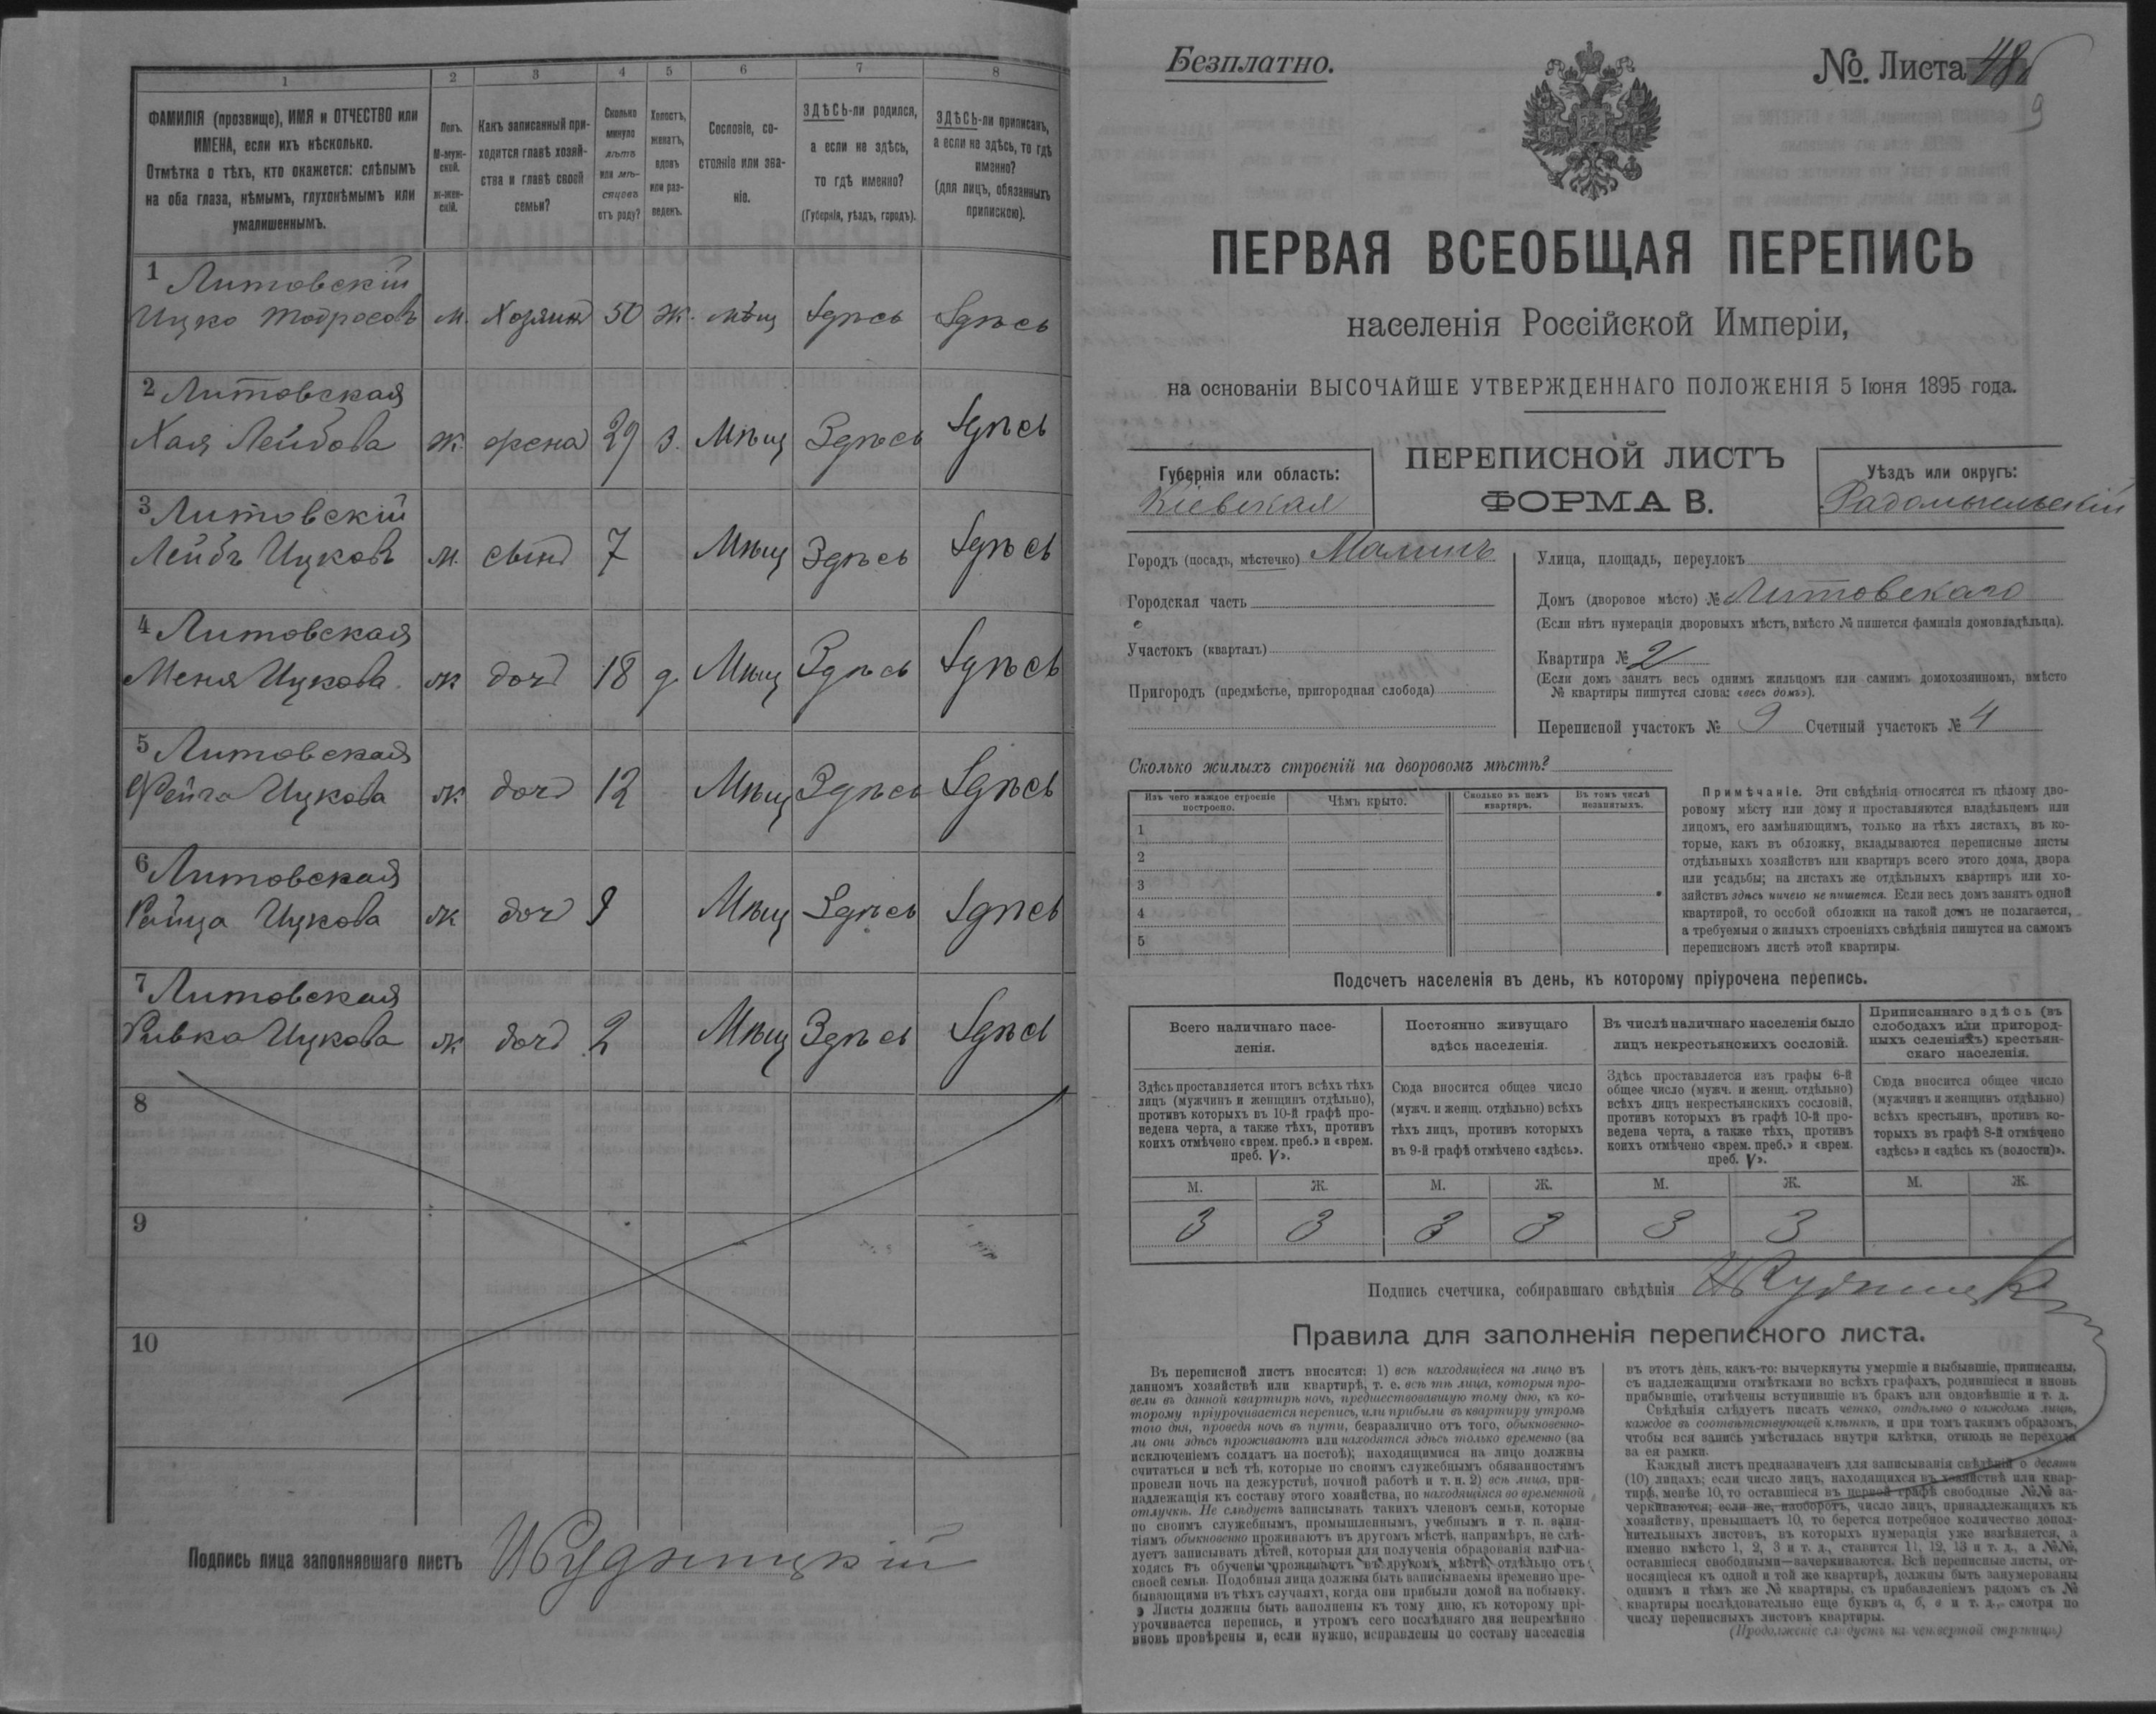 1
2
3
4
5
6
7
8
ФАМИЛІЯ (прозвище), ИМЯ и ОТЧЕСТВО или
ИМЕНА, если ихъ нѣсколько.
Отмѣтка о тѣхъ, кто окажется: слѣпымъ
на оба глаза, нѣмымъ, глухонѣмымъ или
умалишеннымъ.
Полъ.
М-муж-
ской.
ж-жен-
скій.
Какъ записанный при-
ходится главѣ хозяй-
ства и главѣ своей
семьи?
Сколько
минуло
лѣтъ
или мѣ-
сяцевъ
отъ роду?
Холостъ,
женатъ,
вдовъ
или раз-
веденъ.
Сословіе, со-
стояніе или зва-
ніе.
ЗДѢСЬ-ли родился,
а если не здѣсь,
то гдѣ именно?
(Губернія, уѣздъ, городъ).
ЗДѢСЬ-ли приписанъ,
а если не здѣсь, то гдѣ
именно?
(для лицъ, обязанныхъ
припискою).
1 Литовскій
Ицко Тодросовъ м. Хозяинъ 50 ж. мѣщ Здѣсь Здѣсь
2 Литовская
Хая Лейбова ж. жена 29 з. Мѣщ Здѣсь Здѣсь
3 Литовскій
Лейбъ Ицковъ м. сынъ 7 Мѣщ Здѣсь Здѣсь
4 Литовская
Меня Ицкова ж доч 18 д. Мѣщ Здѣсь Здѣсь
5 Литовская
Фейга Ицкова ж доч 12 Мѣщ Здѣсь Здѣсь
6 Литовская
Рейца Ицкова ж доч 9 Мѣщ Здѣсь Здѣсь
7 Литовская
Ривка Ицкова ж доч 2 Мѣщ Здѣсь Здѣсь
8
9
10
Подпись лица заполнявшаго листъ
Безплатно.
№. Листа 48
9
ПЕРВАЯ ВСЕОБЩАЯ ПЕРЕПИСЬ
населенія Россійской Имперіи,
на основаніи ВЫСОЧАЙШЕ УТВЕРЖДЕННАГО ПОЛОЖЕНІЯ 5 Іюня 1895 года.
Губернія или область:
Кіевская
ПЕРЕПИСНОЙ ЛИСТЪ
ФОРМА В.
Уѣздъ или округъ:
Радомысльскій
Городъ (посадъ, мѣстечко) Малинъ
Городская часть
Участокъ (кварталъ)
Пригородъ (предмѣстье, пригородная слобода)
Улица, площадь, переулокъ
Домъ (дворовое мѣсто) № Литовскаго
(Если нѣтъ нумераціи дворовыхъ мѣстъ, вмѣсто № пишется фамилія домовладѣльца).
Квартира № 2
(Если домъ занятъ весь однимъ жильцомъ или самимъ домохозяиномъ, вмѣсто
№ квартиры пишутся слова: «весь домъ»).
Переписной участокъ № 9 Счетный участокъ № 4
Сколько жилыхъ строеній на дворовомъ мѣстѣ?
Изъ чего каждое строеніе
построено.
Чѣмъ крыто.
Сколько въ немъ
квартиръ.
Въ томъ числѣ
незанятыхъ.
1
2
3
4
5
Примѣчаніе. Эти свѣдѣнія относятся къ цѣлому дво-
ровому мѣсту или дому и проставляются владѣльцемъ или
лицомъ, его замѣняющимъ, только на тѣхъ листахъ, въ ко-
торые, какъ въ обложку, вкладываются переписные листы
отдѣльныхъ хозяйствъ или квартиръ всего этого дома, двора
или усадьбы; на листахъ же отдѣльныхъ квартиръ или хо-
зяйствъ здѣсь ничего не пишется. Если весь домъ занятъ одной
квартирой, то особой обложки на такой домъ не полагается,
а требуемыя о жилыхъ строеніяхъ свѣдѣнія пишутся на самомъ
переписномъ листѣ этой квартиры.
Подсчетъ населенія въ день, къ которому пріурочена перепись.
Всего наличнаго насе-
ленія.
Постоянно живущаго
здѣсь населенія.
Въ числѣ наличнаго населенія было
лицъ некрестьянскихъ сословій.
Приписаннаго здѣсь (въ
слободахъ или пригород-
ныхъ селеніяхъ) крестьян-
скаго населенія.
Здѣсь проставляется итогъ всѣхъ тѣхъ
лицъ (мужчинъ и женщинъ отдѣльно),
противъ которыхъ въ 10-й графѣ про-
ведена черта, а также тѣхъ, противъ
коихъ отмѣчено «врем. преб.» и «врем.
преб. V».
Сюда вносится общее число
(мужч. и женщ. отдѣльно) всѣхъ
тѣхъ лицъ, противъ которыхъ
въ 9-й графѣ отмѣчено «здѣсь».
Здѣсь проставляется изъ графы 6-й
общее число (мужч. и женщ. отдѣльно)
всѣхъ лицъ некрестьянскихъ сословій,
противъ которыхъ въ графѣ 10-й про-
ведена черта, а также тѣхъ, противъ
коихъ отмѣчено «врем. преб.» и «врем.
преб. V».
Сюда вносится общее число
(мужчинъ и женщинъ отдѣльно)
всѣхъ крестьянъ, противъ ко-
торыхъ въ графѣ 8-й отмѣчено
«здѣсь» и «здѣсь къ (волости)».
М. Ж. М. Ж. М. Ж. М. Ж.
3 3 3 3 3 3
Подпись счетчика, собиравшаго свѣдѣнія
Правила для заполненія переписного листа.
Въ переписной листъ вносятся: 1) всѣ находящіеся на лицо въ
данномъ хозяйствѣ или квартирѣ, т. е. всѣ тѣ лица, которыя про-
вели въ данной квартирѣ ночь, предшествовавшую тому дню, къ ко-
торому пріурочивается перепись, или прибыли въ квартиру утромъ
того дня, проведя ночь въ пути, безразлично отъ того, обыкновенно-
ли они здѣсь проживаютъ или находятся здѣсь только временно (за
исключеніемъ солдатъ на постоѣ); находящимися на лицо должны
считаться и всѣ тѣ, которые по своимъ служебнымъ обязанностямъ
провели ночь на дежурствѣ, ночной работѣ и т. п. 2) всѣ лица, при-
надлежащія къ составу этого хозяйства, но находящіяся во временной
отлучкѣ. Не слѣдуетъ записывать такихъ членовъ семьи, которые
по своимъ служебнымъ, промышленнымъ, учебнымъ и т. п. заня-
тіямъ обыкновенно проживаютъ въ другомъ мѣстѣ, напримѣръ, не слѣ-
дуетъ записывать дѣтей, которыя для полученія образованія или на-
ходясь въ обученьи проживаютъ въ другомъ мѣстѣ, отдѣльно отъ
своей семьи. Подобныя лица должны быть записываемы временно пре-
бывающими въ тѣхъ случаяхъ, когда они прибыли домой на побывку.
Листы должны быть заполнены къ тому дню, къ которому прі-
урочивается перепись, и утромъ сего послѣдняго дня непремѣнно
вновь провѣрены и, если нужно, исправлены по составу населенія
въ этотъ день, какъ-то: вычеркнуты умершіе и выбывшіе, приписаны,
съ надлежащими отмѣтками во всѣхъ графахъ, родившіеся и вновь
прибывшіе, отмѣчены вступившіе въ бракъ или овдовѣвшіе и т. д.
Свѣдѣнія слѣдуетъ писать четко, отдѣльно о каждомъ лицѣ,
каждое въ соотвѣтствующей клѣткѣ, и при томъ такимъ образомъ,
чтобы вся запись умѣстилась внутри клѣтки, отнюдь не переходя
за ея рамки.
Каждый листъ предназначенъ для записыванія свѣдѣній о десяти
(10) лицахъ; если число лицъ, находящихся въ хозяйствѣ или квар-
тирѣ, менѣе 10, то оставшіеся въ первой графѣ свободные №№ за-
черкиваются; если же, наоборотъ, число лицъ, принадлежащихъ къ
хозяйству, превышаетъ 10, то берется потребное количество допол-
нительныхъ листовъ, въ которыхъ нумерація уже измѣняется, а
именно вмѣсто 1, 2, 3 и т. д., ставится 11, 12, 13 и т. д., а №№,
оставшіеся свободными—зачеркиваются. Всѣ переписные листы, от-
носящіеся къ одной и той же квартирѣ, должны быть занумерованы
однимъ и тѣмъ же № квартиры, съ прибавленіемъ рядомъ съ №
квартиры послѣдовательно еще буквъ а, б, в и т. д., смотря по
числу переписныхъ листовъ квартиры.
(Продолженіе слѣдуетъ на четвертой страницѣ)